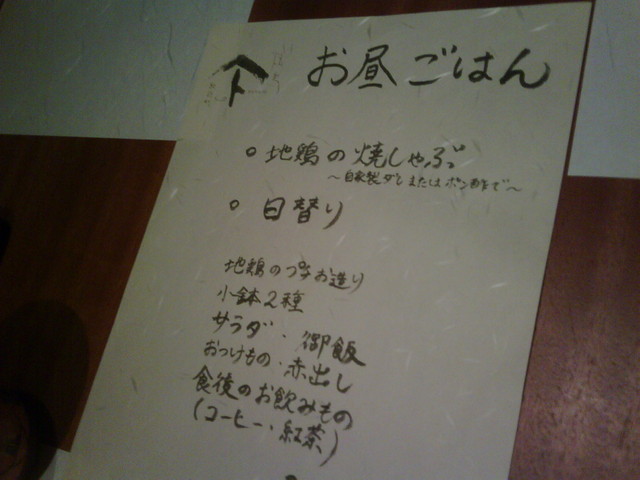 お昼ごはん
○ 地鶏の焼しゃぶ
～自家製ダレまたはポン酢で～
○ 日替り
地鶏のプチお造り
小鉢2種
サラダ・御飯
おつけもの・赤出し
食後のお飲みもの
(コーヒー・紅茶)